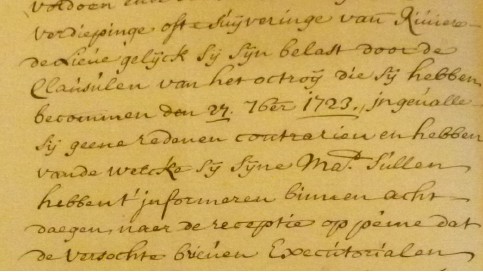 voldoen
verdiepinge ofte suijveringe van Riviere
de Lieve gelijck sij sijn belast door de
Clausulen van het octroij die sij hebben
becommen den 27. 7ber 1723., jngevalle
sij geene redenen contrarien en hebben
vande welcke sij sijne Mat. sullen
hebben t'jnformeren binnen acht
daegen naer de receptie op peine dat
de versochte brieven Executorialen